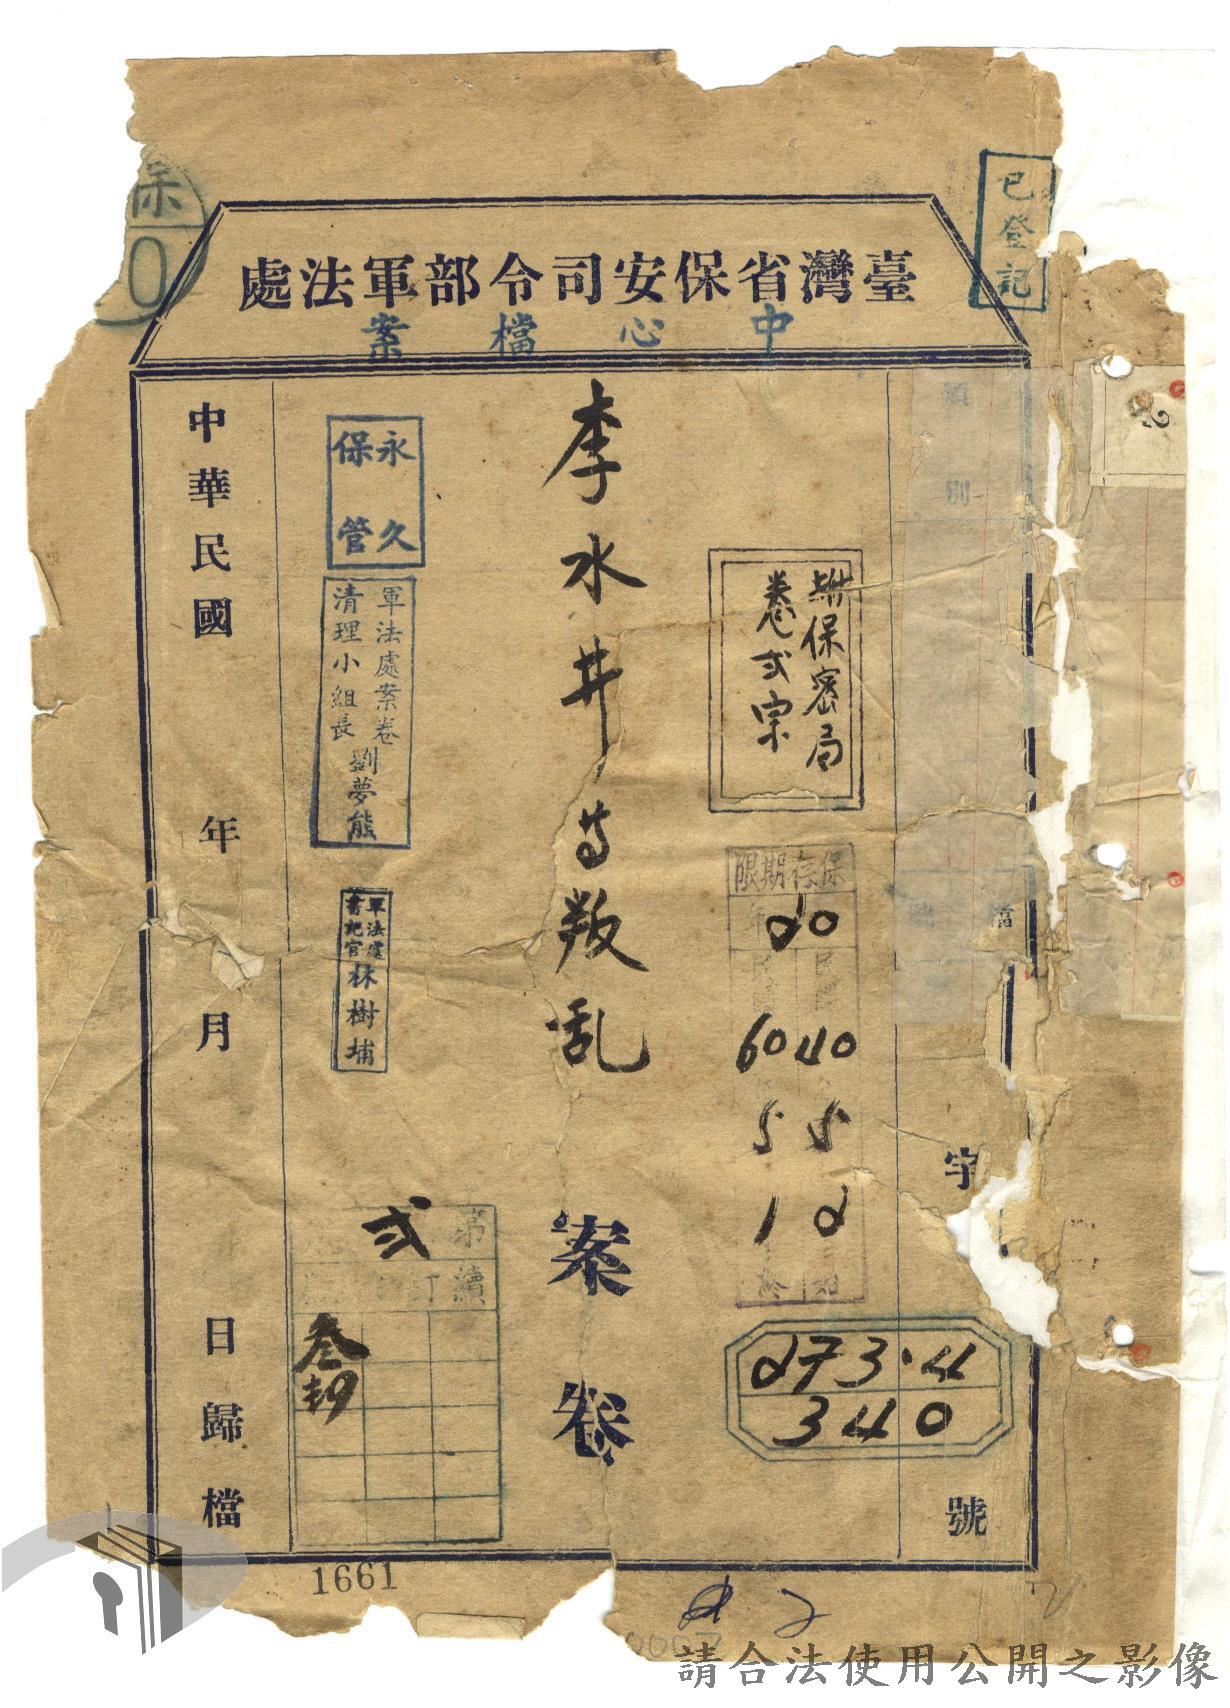 已登記
保
0
臺灣省保安司令部軍法處
中心檔案
2
類
別
檔
字
號
附保密局
卷弍宗
保存期限
年
20
民國
40
60
5
5
2
1
273.4
340
李水井等叛乱
案卷
永久
保管
軍法處案卷
清理小組長
劉夢熊
軍法處
書記官
林樹埔
第
弍
續訂
叁
中華民國 年 月 日歸檔
1661
0007
請合法使用公開之影像